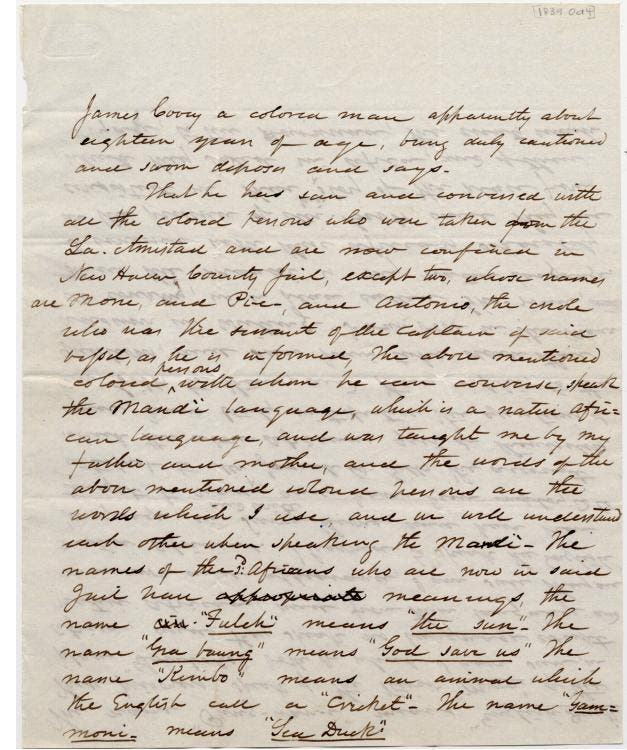 1839 Oct 4
James Covey a colored man apparently about
eighteen years of age, being duly cautioned
and sworn deposes and says-
That he has seen and conversed with
all the colored persons who were taken from the
La. Amistad and are now confined in
New Haven County Jail, except two, whose names
are Mone, and Pie-, and Antonio, the creole
who was the servant of the Captain of said
vessel, as he is informed, The above mentioned
persons
colored with whom he can converse, speak
the Mandi language, which is a native Afri=
can language, and was taught me by my
father and mother, and the words of the
above mentioned colored persons are the
words which I use, and we well understand
each other when speaking the Mandi- The
names of the Africans who are now in said
Jail have appropriate meanings, the
name "Fuleh" means "the sun"- The
name "Gra baung" means "God save us" The
name "Kimbo" means an animal which
the English call a "Cricket"- The name "Gam=
moni- means "Sea Duck"